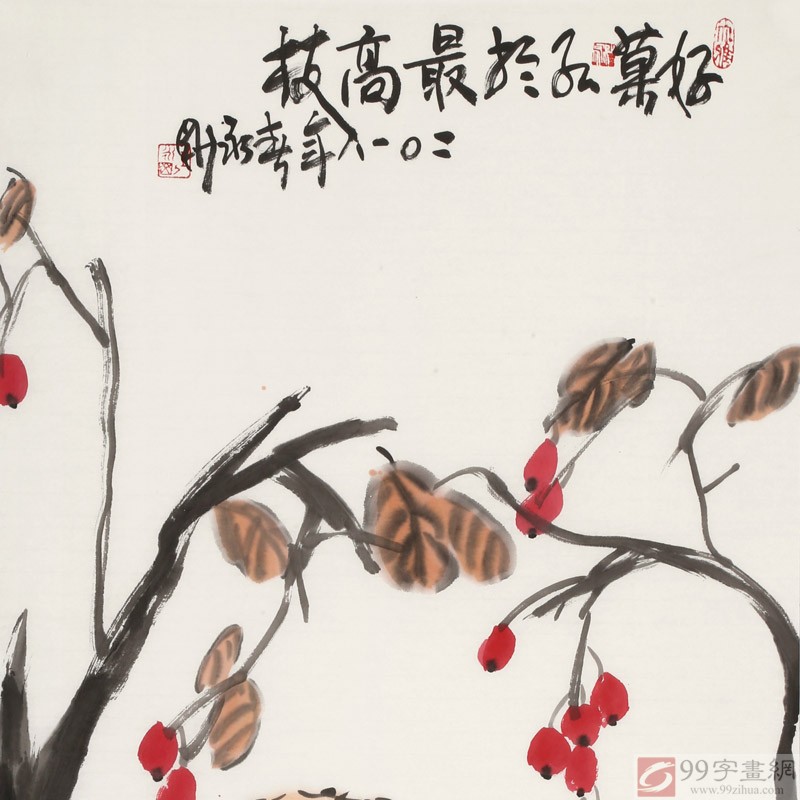 好菓於最高枝
二〇一八年春永刚
99字畫網
www.99zihua.com